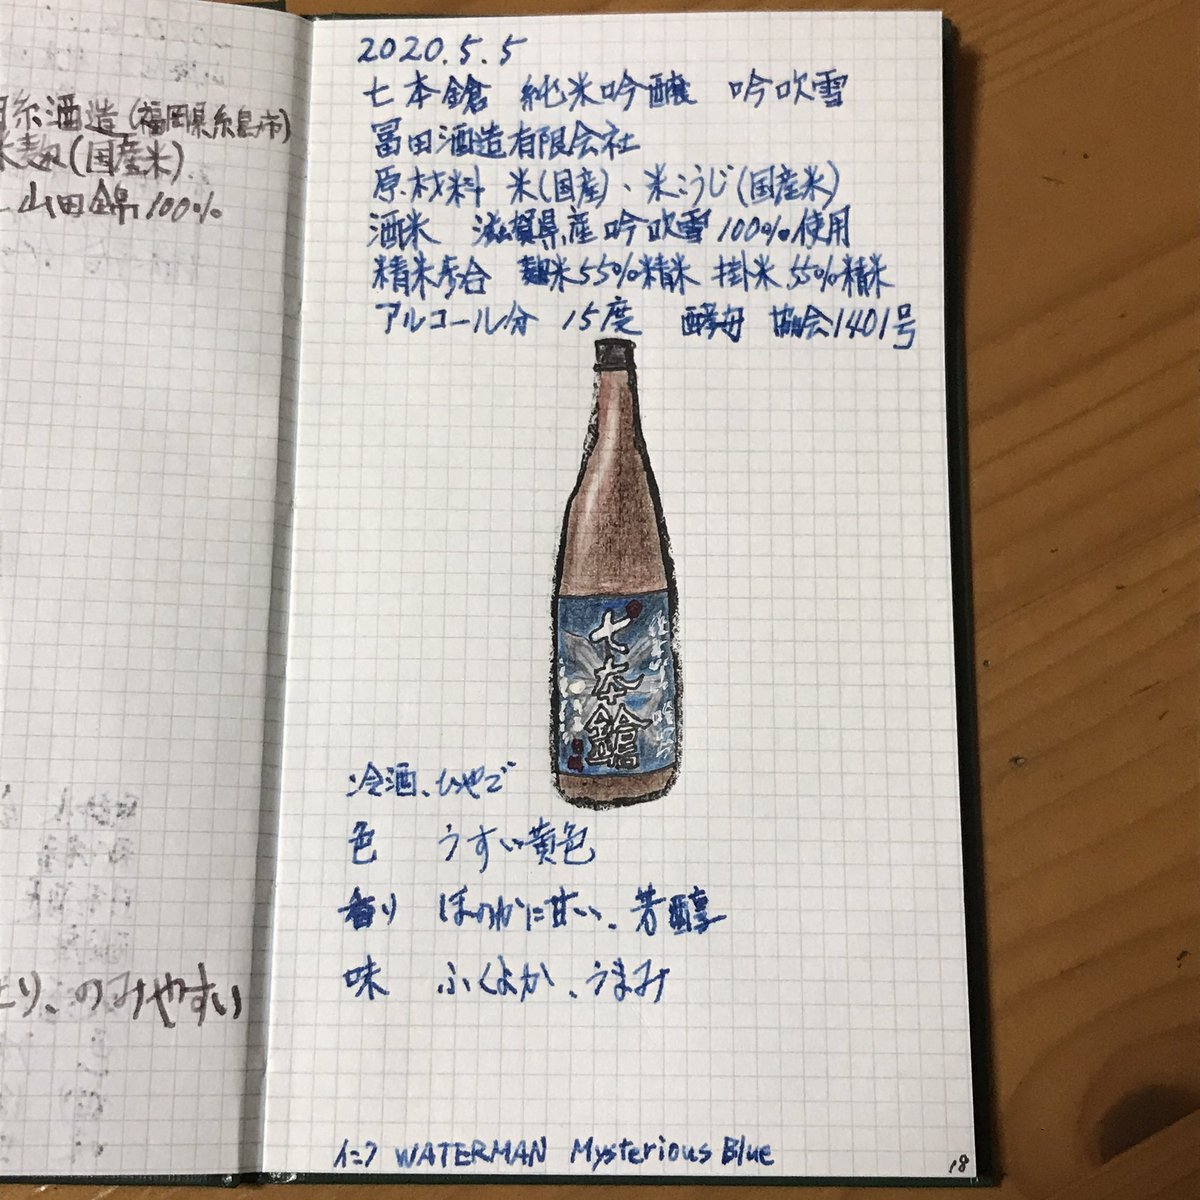 糸酒造(福岡県糸島市)
米麹(国産米)
山田錦100%
り、のみやすい
2020.5.5
七本鎗 純米吟醸 吟吹雪
冨田酒造有限会社
原材料 米(国産)、米こうじ(国産米)
酒米 滋賀県産吟吹雪100%使用
精米歩合 麹米55%精米 掛米55%精米
アルコール分 15度 酵母 協会1401号
七本鎗
冷酒、ひやで
色 うすい黄色
香り ほのかに甘い、芳醇
味 ふくよか、うまみ
インク WATERMAN Mysterious Blue
18